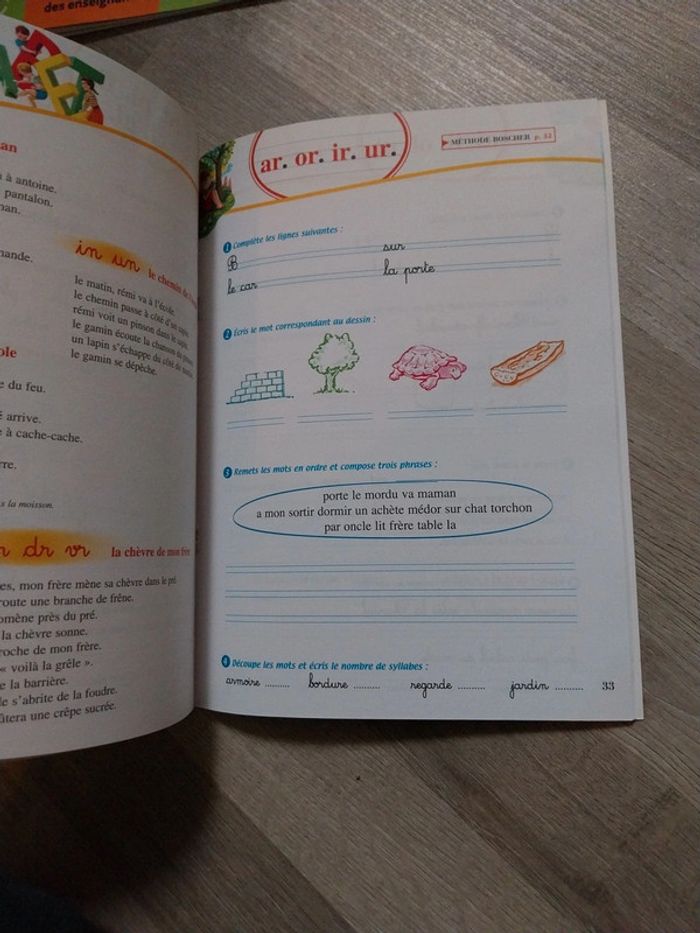 des enseignan
an
à antoine.
pantalon.
man.
mande.
in un le chemin de l'
le matin, rémi va à l'école.
le chemin passe à côté d'un
rémi voit un pinson dans le
le gamin écoute la chanson du
un lapin s'échappe du côté du
le gamin se dépêche.
ole
e du feu.
é arrive.
e à cache-cache.
rre.
s la moisson.
dr vr la chèvre de mon frère
es, mon frère mène sa chèvre dans le pré.
route une branche de frêne.
omène près du pré.
la chèvre sonne.
roche de mon frère.
« voilà la grêle ».
e la barrière.
le s'abrite de la foudre.
ûtera une crêpe sucrée.
ar. or. ir. ur.
MÉTHODE BOSCHER p. 32
1 Complète les lignes suivantes :
B sur
le car la porte
2 Écris le mot correspondant au dessin :
3 Remets les mots en ordre et compose trois phrases :
porte le mordu va maman
a mon sortir dormir un achète médor sur chat torchon
par oncle lit frère table la
4 Découpe les mots et écris le nombre de syllabes :
armoire .......... bordure .......... regarde .......... jardin ..........
33